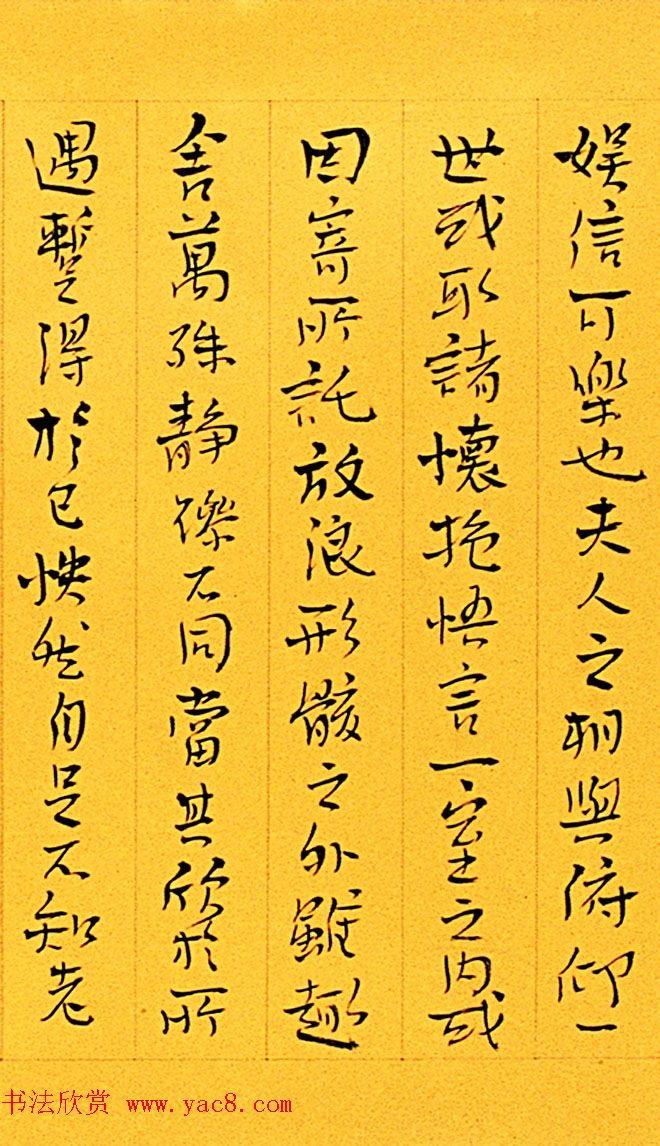 娱信可樂也夫人之相與俯仰一
世或取諸懷抱悟言一室之内或
因寄所託放浪形骸之外雖趣
舍萬殊静躁不同當其欣於所
遇暫得於己快然自足不知老
书法欣赏 www.yac8.com